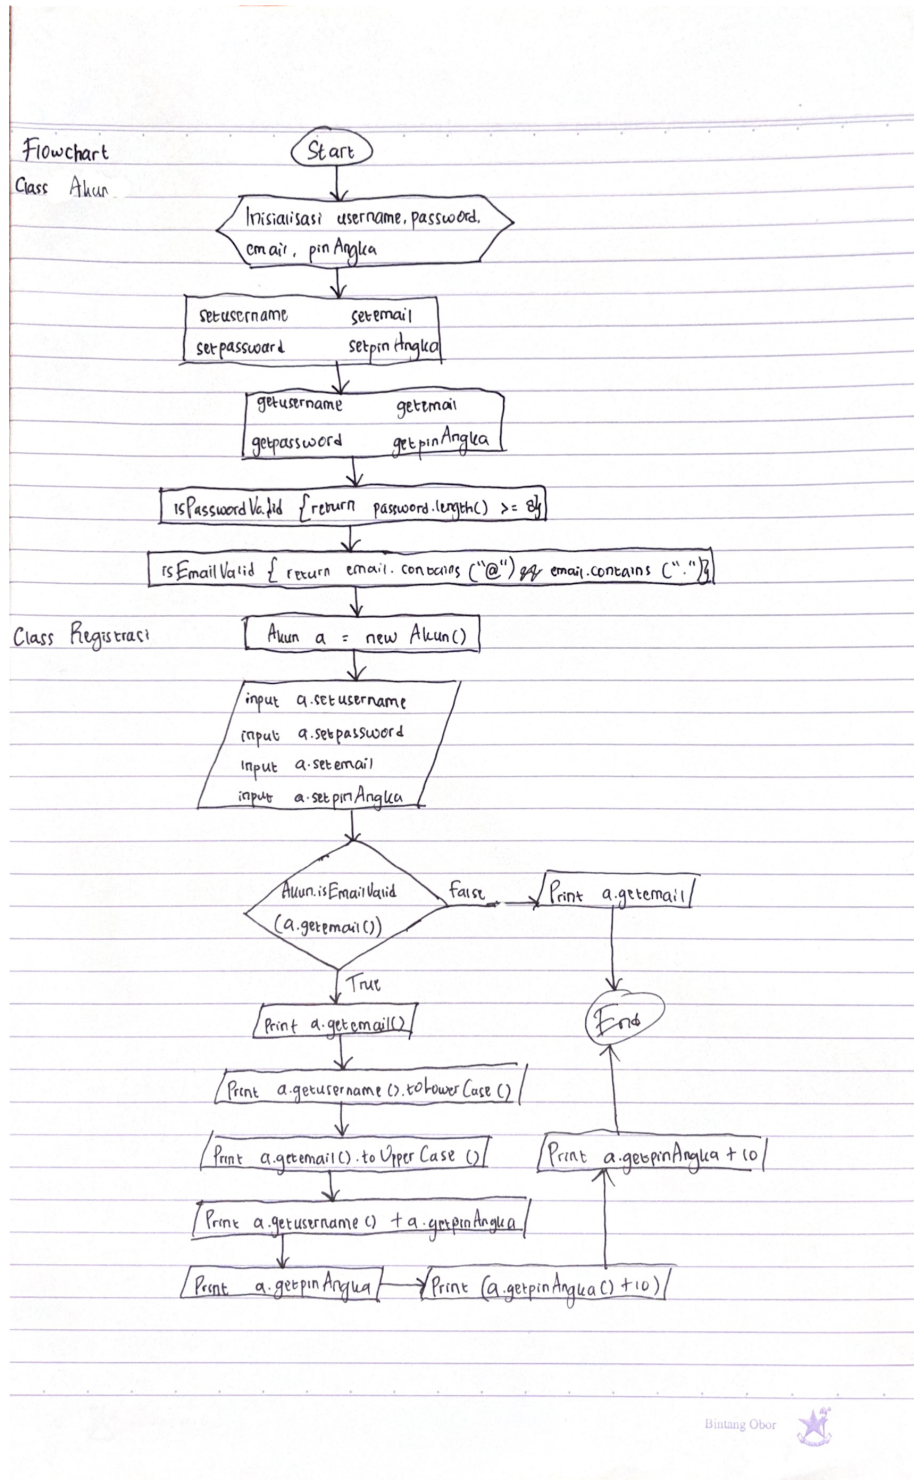 Flowchart
Class Akun
Start
Inisialisasi username, password,
email, pinAngka
setusername setemail
setpassword setpinAngka
getusername getemail
getpassword getpinAngka
isPasswordValid {return password.length() >= 8}
isEmailValid { return email.contains ("@") && email.contains (".")}
Class Registrasi
Akun a = new Akun()
input a.setusername
input a.setpassword
input a.setemail
input a.setpinAngka
Akun.isEmailValid
(a.getemail())
False
Print a.getemail
True
End
Print a.getemail()
Print a.getusername().toLowerCase()
Print a.getemail().toUpperCase()
Print a.getpinAngka + 10
Print a.getusername() + a.getpinAngka
Print a.getpinAngka
Print (a.getpinAngka() + 10)
Bintang Obor